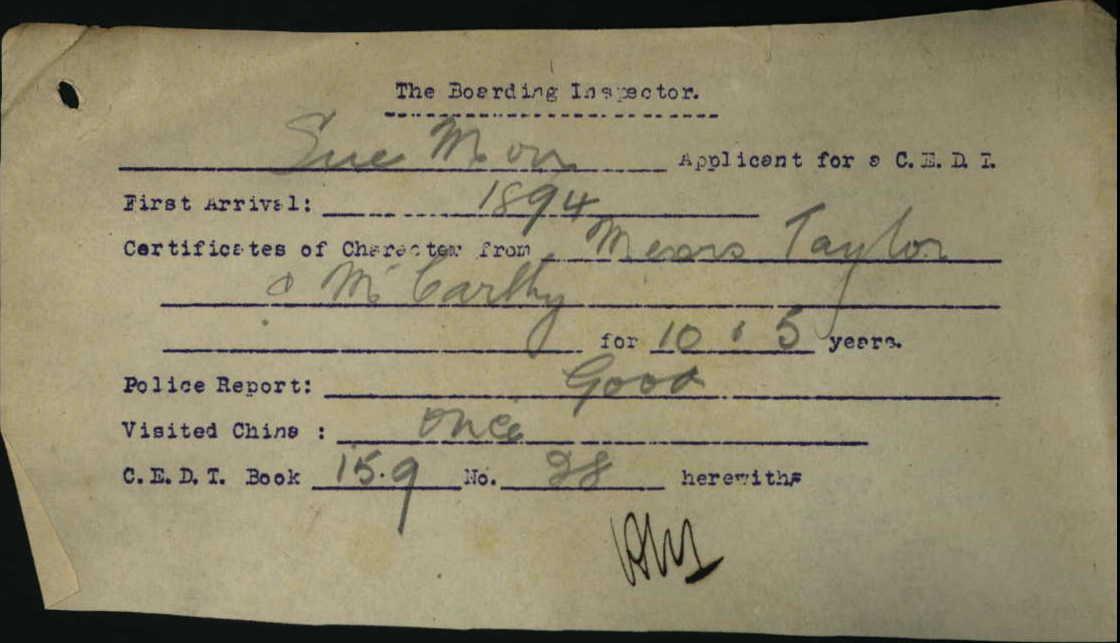 The Boarding Inspector.
Sue Mon Applicant for a C.E.D.T.
First Arrival: 1894
Certificates of Character from Messrs Taylor
& McCarthy
for 10 & 5 years.
Police Report: Good
Visited China : once
C.E.D.T. Book 159 No. 28 herewith